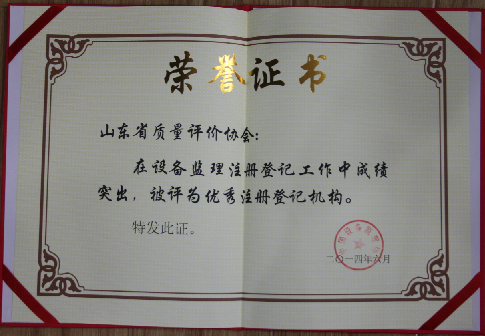 荣誉证书
山东省质量评价协会:
在设备监理注册登记工作中成绩
突出，被评为优秀注册登记机构。
特发此证。
二〇一四年六月